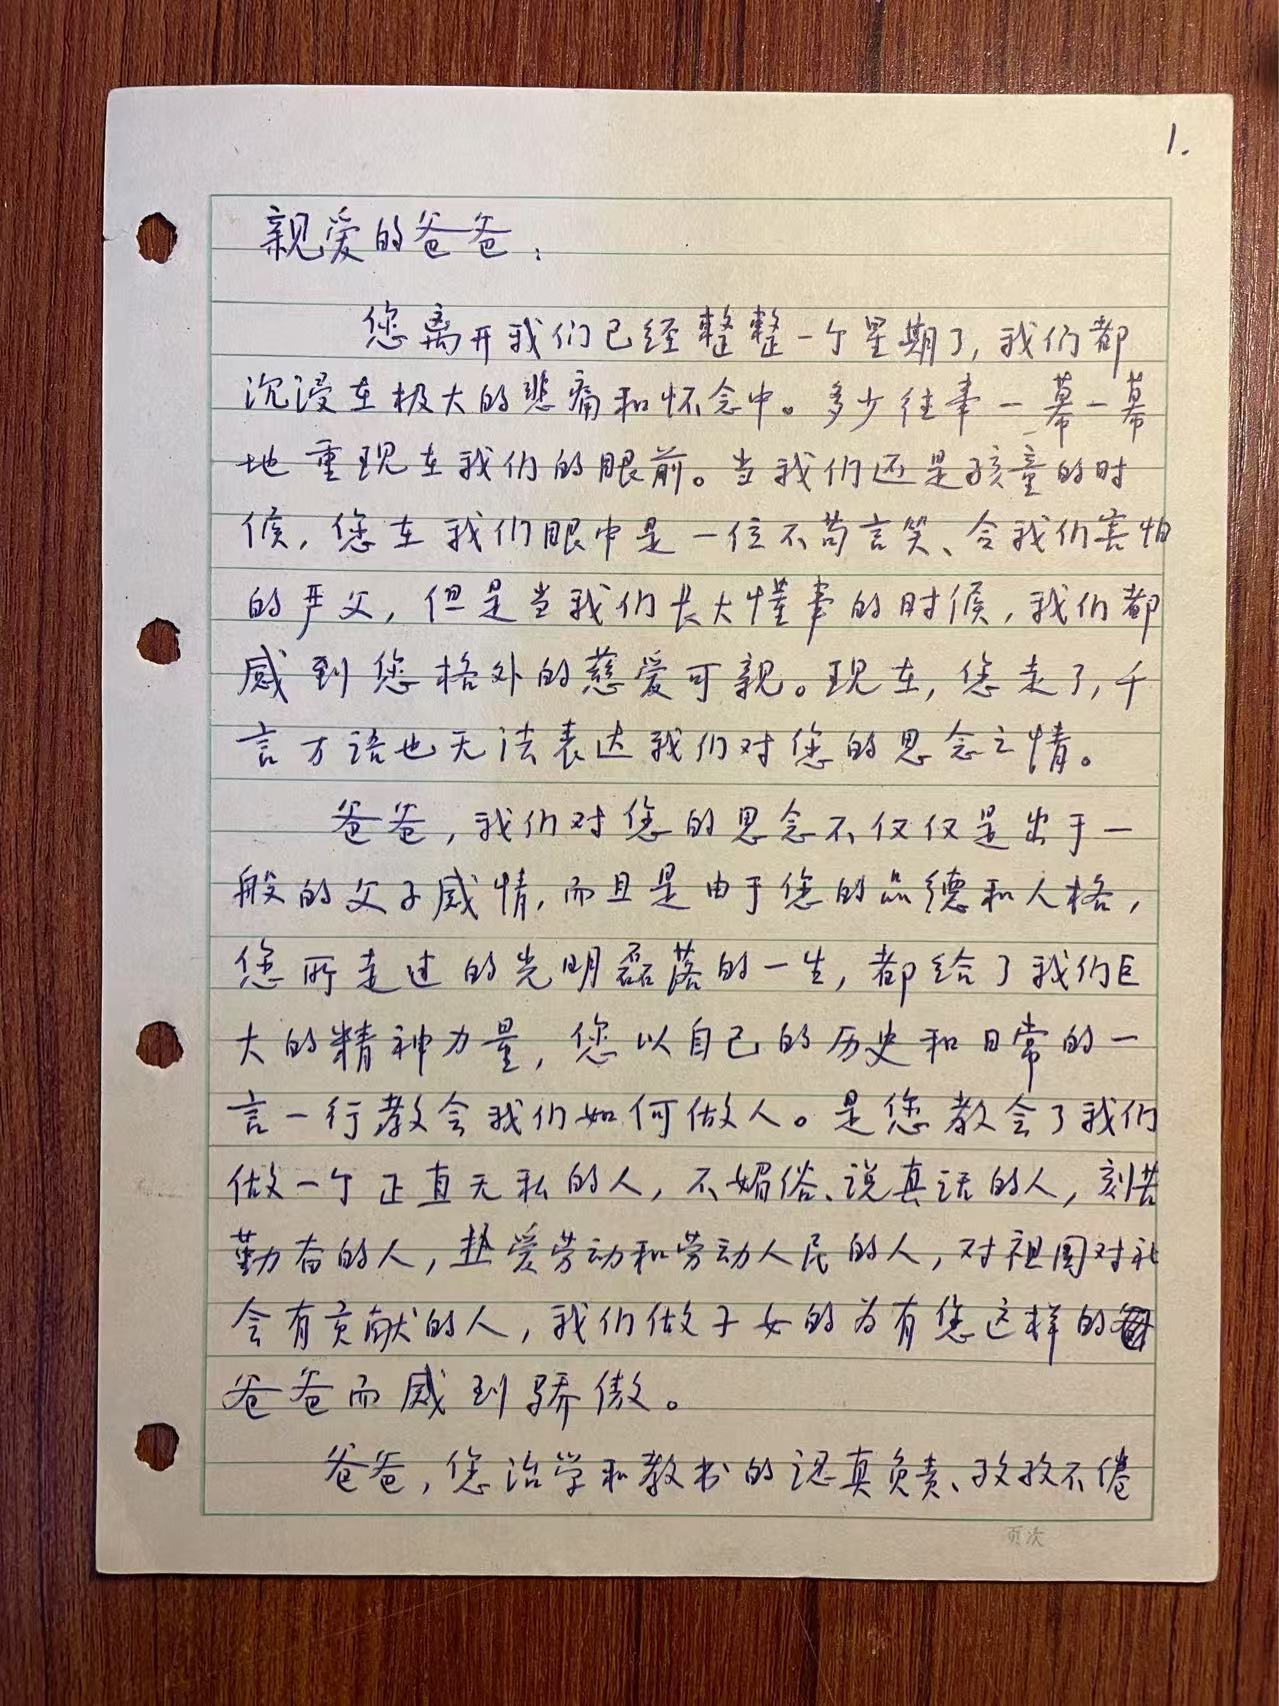 1.
亲爱的爸爸：
您离开我们已经整整一个星期了，我们都
沉浸在极大的悲痛和怀念中。多少往事一幕一幕
地重现在我们的眼前。当我们还是孩童的时
候，您在我们眼中是一位不苟言笑、令我们害怕
的严父，但是当我们长大懂事的时候，我们都
感到您格外的慈爱可亲。现在，您走了，千
言万语也无法表达我们对您的思念之情。
爸爸，我们对您的思念不仅仅是出于一
般的父子感情，而且是由于您的品德和人格，
您所走过的光明磊落的一生，都给了我们巨
大的精神力量，您以自己的历史和日常的一
言一行教会我们如何做人。是您教会了我们
做一个正直无私的人，不媚俗、说真话的人，刻苦
勤奋的人，热爱劳动和劳动人民的人，对祖国对社
会有贡献的人，我们做子女的为有您这样的
爸爸而感到骄傲。
爸爸，您治学和教书的认真负责、孜孜不倦
页次